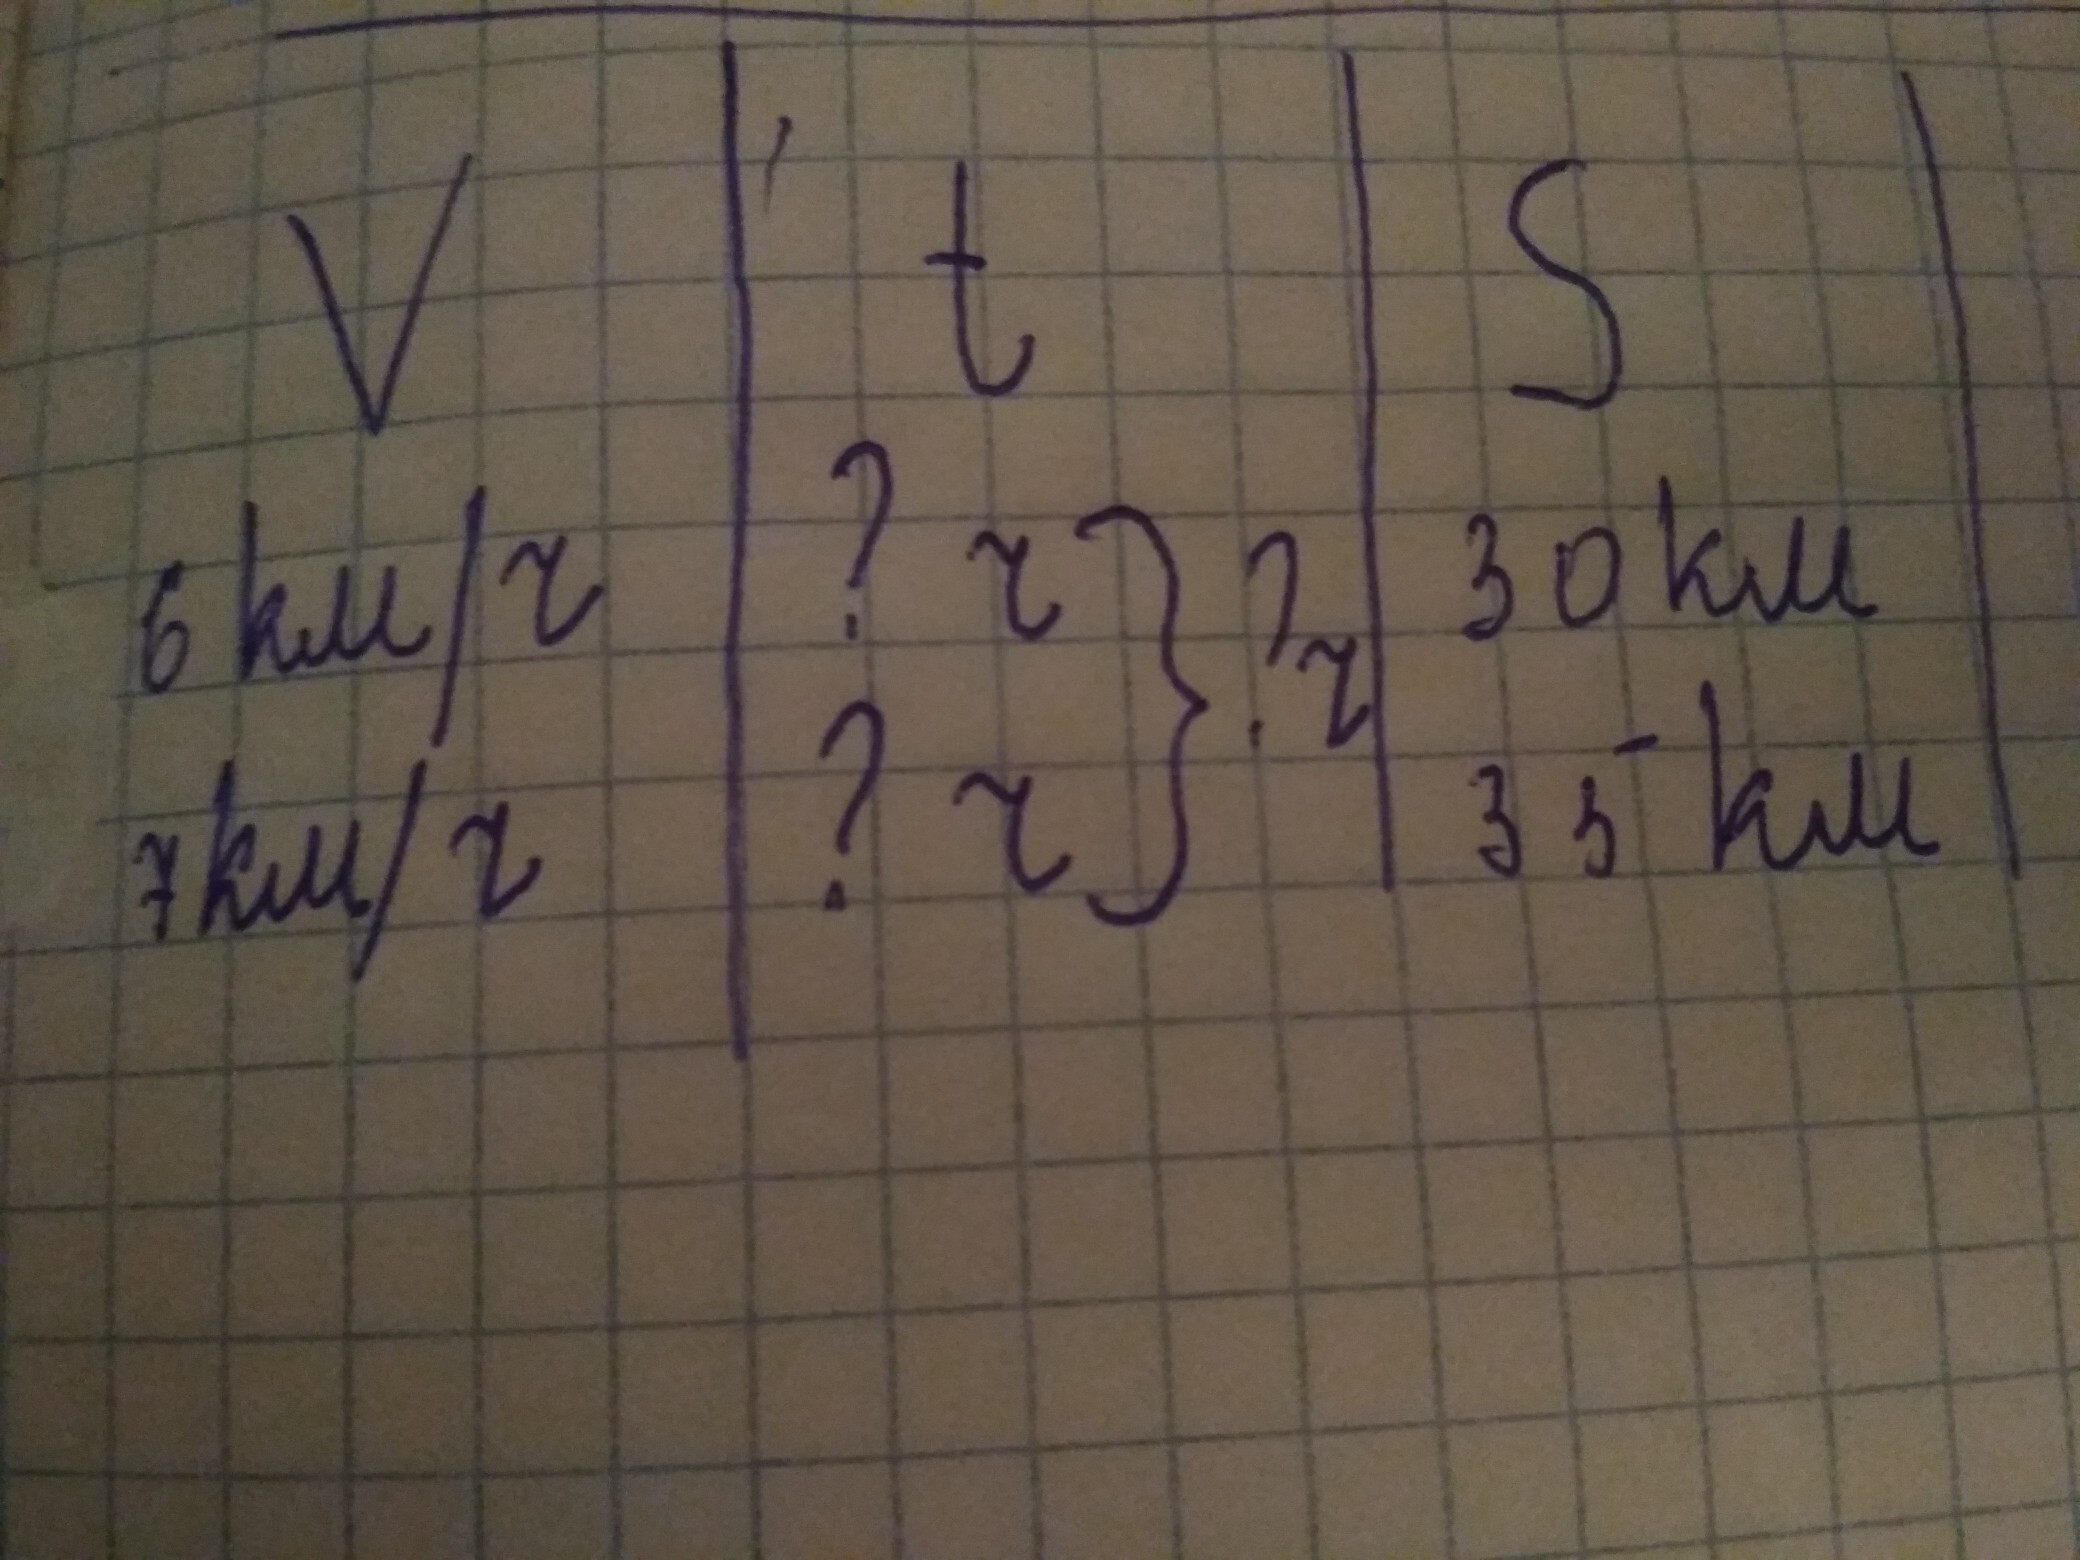 V t S
6 км/ч ? ч } ? ч 30 км
7 км/ч ? ч 35 км